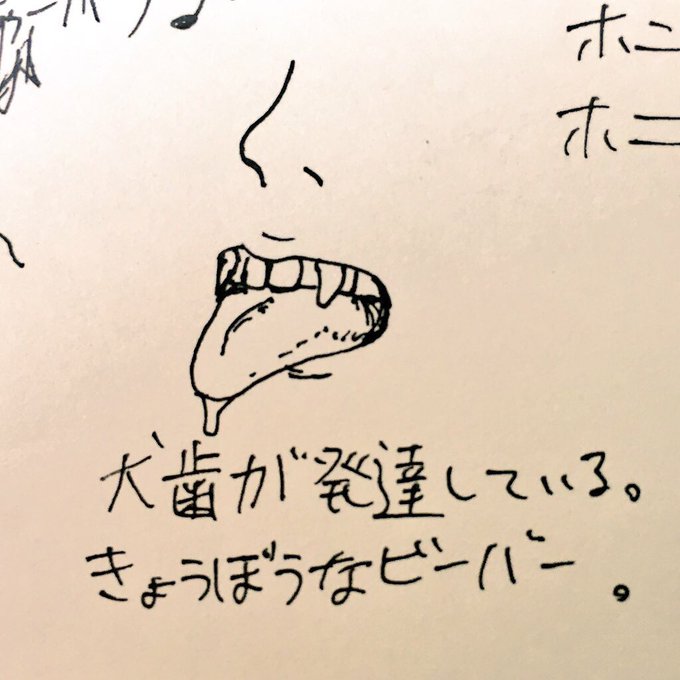 ホニ
ホニ
犬歯が発達している。
きょうぼうなビーバー。